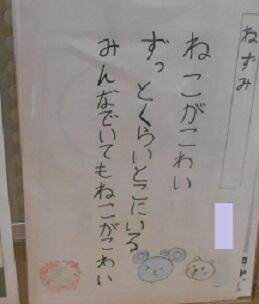 ねずみ
ねこがこわい
ずっとくらいとこにいる
みんなでいてもねこがこわい